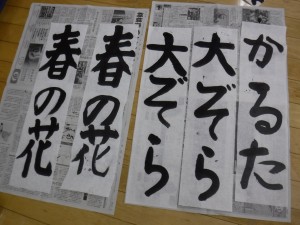 かるた
大ぞら
大ぞら
春の花
春の花